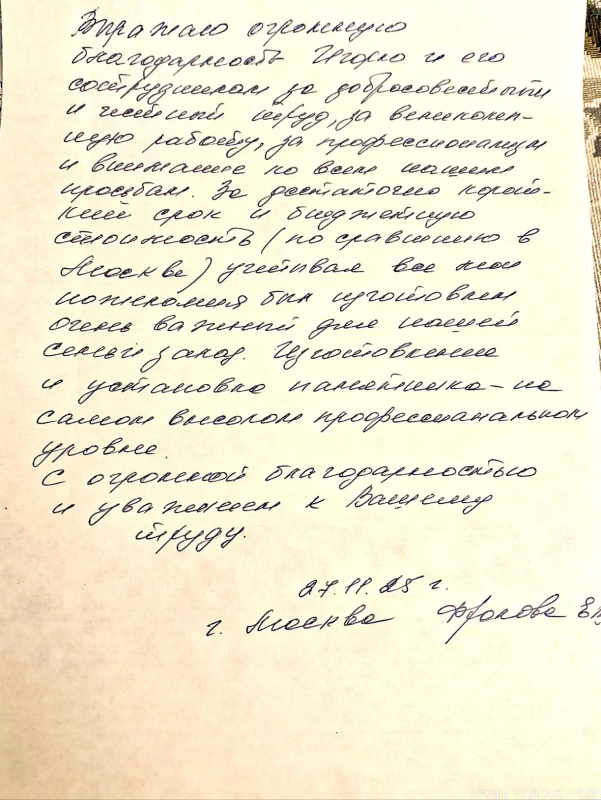 Выражаю огромную
благодарность Игорю и его
сотрудникам за добросовестный
и честный труд, за великолеп-
ную работу, за профессионализм
и внимание ко всем нашим
просьбам. За достаточно корот-
кий срок и бюджетную
стоимость (по сравнению в
Москве) учитывая все мои
пожелания был изготовлен
очень важный для нашей
семьи заказ. Изготовление
и установка памятника – на
самом высоком профессиональном
уровне.
С огромной благодарностью
и уважением к Вашему
труду.
27.11.25 г.
г. Москва Фролова ЕВ